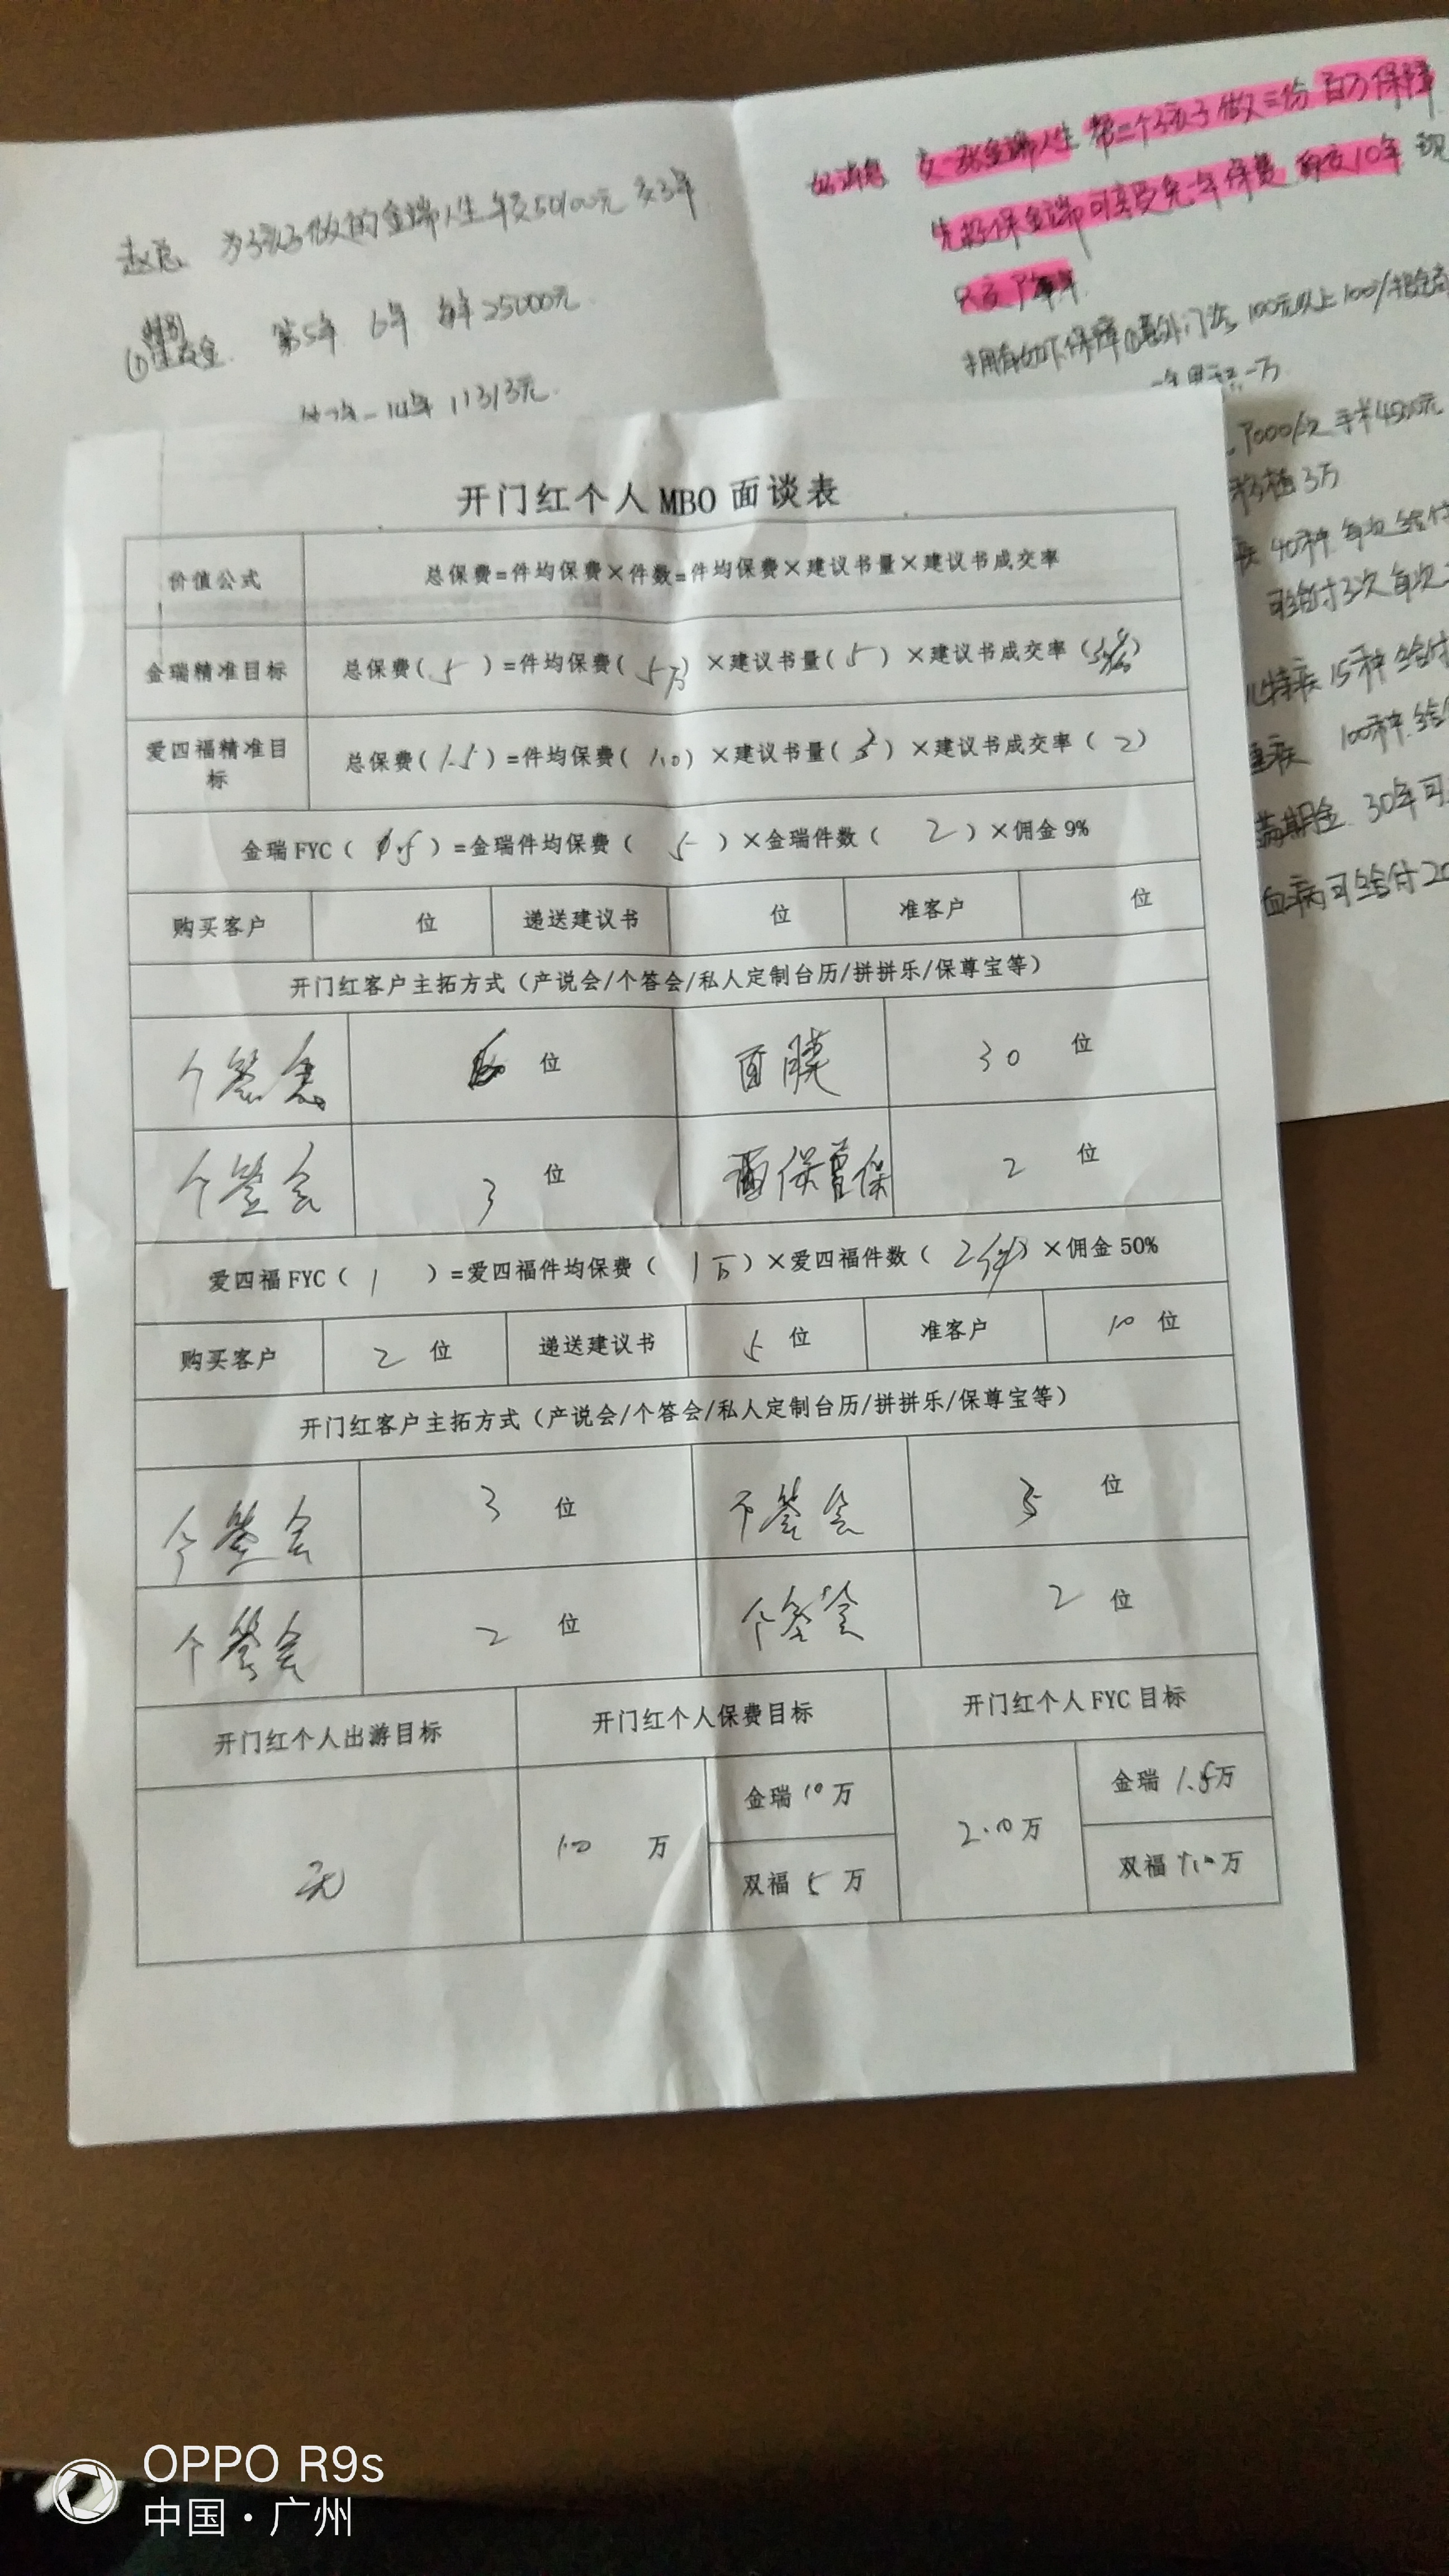 赵总 为孩子做的金瑞人生年交50100元 交3年
① 特别生存金 第5年 6年 每年25000元
第7年-14年 11313元
好消息 交一张金瑞人生 帮二个孩子做三份 百万保障
先投保金瑞可享受免一年保费 每交10年 现
只交了
拥有如下保障 ①意外门诊 100元以上100%
7000/次 手术4500元
移植3万
40种 每次给付
可给付3次 每次
特疾15种 给付
重疾 100种 给
满期金 30年可
血病可给付20
开门红个人 MBO 面谈表
价值公式 总保费=件均保费×件数=件均保费×建议书量×建议书成交率
金瑞精准目标 总保费( 5 )=件均保费( 5万 )×建议书量( 5 )×建议书成交率( )
爱四福精准目标 总保费( 1.5 )=件均保费( 1.0 )×建议书量( 3 )×建议书成交率( 2 )
金瑞 FYC( 0.5 )=金瑞件均保费( 5 )×金瑞件数( 2 )×佣金 9%
购买客户 位 递送建议书 位 准客户 位
开门红客户主拓方式(产说会/个答会/私人定制台历/拼拼乐/保尊宝等)
个答会 位 面膜 30 位
个签会 3 位 保尊保 2 位
爱四福 FYC( 1 )=爱四福件均保费( 1万 )×爱四福件数( 2件 )×佣金 50%
购买客户 2 位 递送建议书 5 位 准客户 10 位
开门红客户主拓方式(产说会/个答会/私人定制台历/拼拼乐/保尊宝等)
个签会 3 位 个答会 5 位
个答会 2 位 个签会 2 位
开门红个人出游目标 开门红个人保费目标 开门红个人 FYC 目标
无 10 万 金瑞 10 万 2.10 万 金瑞 1.5 万
双福 5 万 双福 1.10 万
OPPO R9s
中国·广州